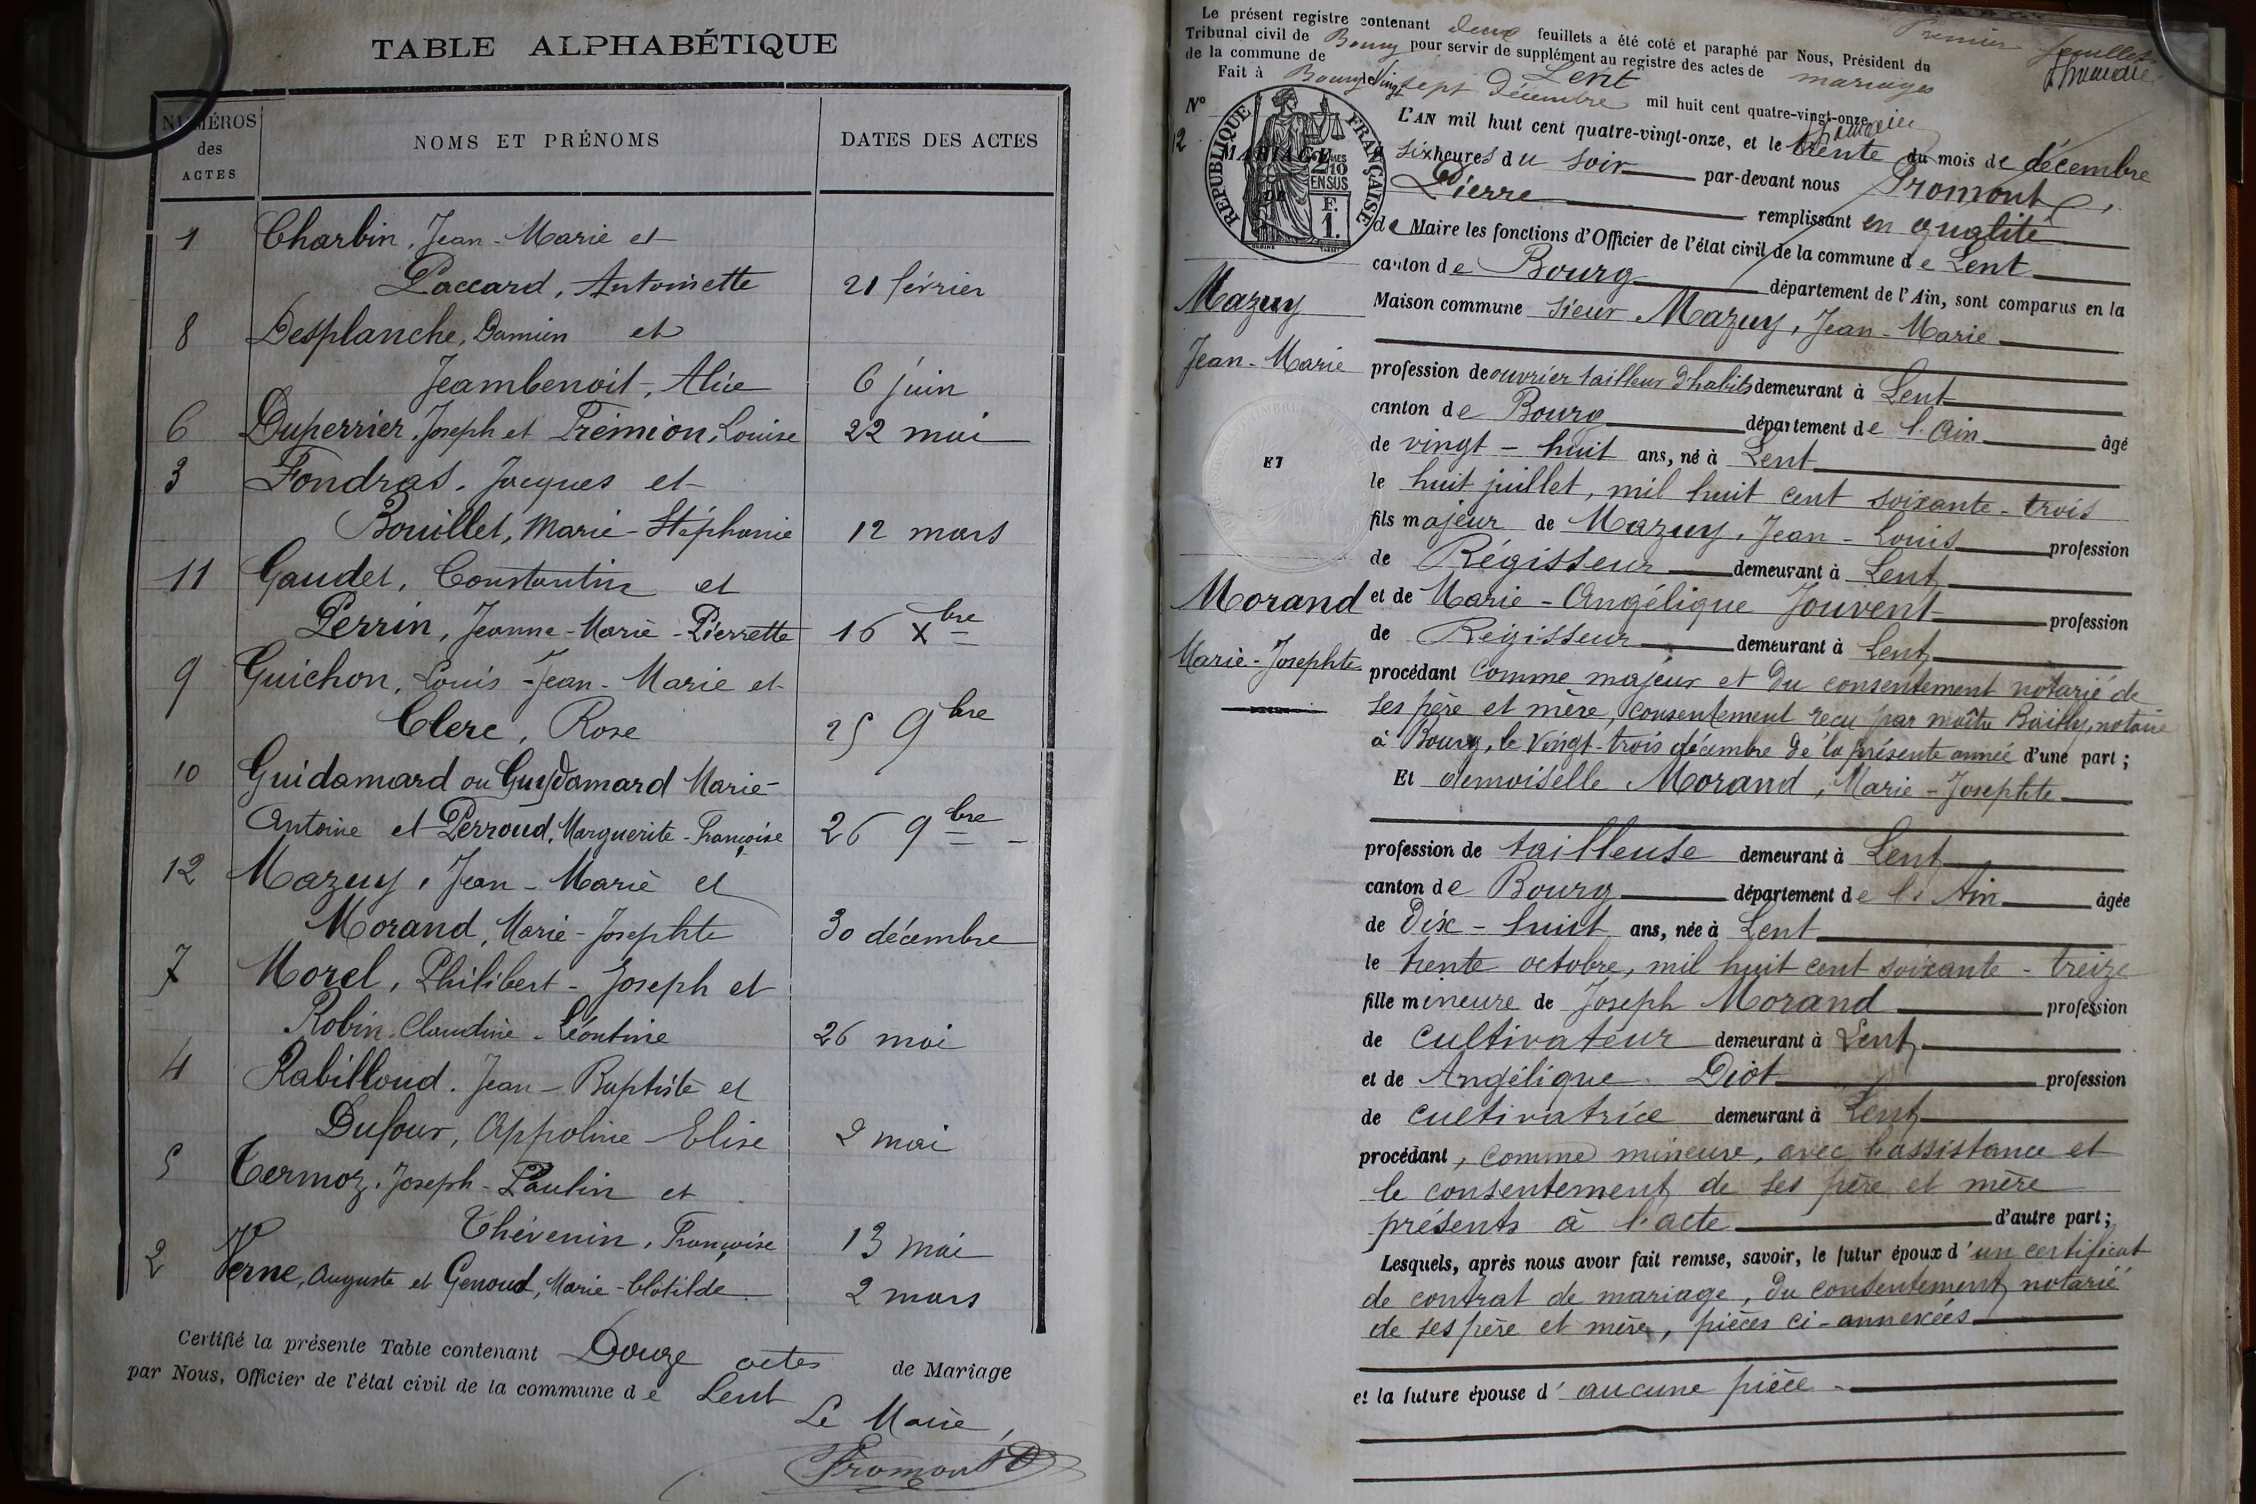 TABLE ALPHABÉTIQUE
NUMÉROS des ACTES
NOMS ET PRÉNOMS
DATES DES ACTES
1 Charbin, Jean-Marie et
Paccard, Antoinette 21 février
8 Desplanche, Damien et
Jeambenoit, Alice 6 juin
6 Duperrier, Joseph et Prémion, Louise 22 mai
3 Fondras, Jacques et
Bouillet, Marie-Stéphanie 12 mars
11 Gaudet, Constantin et
Perrin, Jeanne-Marie-Pierrette 16 Xbre
9 Guichon, Louis-Jean-Marie et
Clerc, Rose 25 9bre
10 Guidamard ou Guydamard Marie-
Antoine et Perroud, Marguerite-Françoise 26 9bre
12 Mazuy, Jean-Marie et
Morand, Marie-Josephte 30 décembre
7 Morel, Philibert-Joseph et
Robin, Claudine-Léontine 26 mai
4 Rabilloud, Jean-Baptiste et
Dufour, Appoline Elise 2 mai
5 Termoz, Joseph-Paulin et
Thévenin, Françoise 13 mai
2 Verne, Auguste et Genoud, Marie-Clotilde 2 mars
Certifié la présente Table contenant Douze actes de Mariage
par Nous, Officier de l'état civil de la commune de Lent
Le Maire,
Fromont
Premier feuillet
Le présent registre contenant deux feuillets a été coté et paraphé par Nous, Président du
Tribunal civil de Bourg pour servir de supplément au registre des actes de mariages
de la commune de Lent
Fait à Bourg le vingt sept Décembre mil huit cent quatre-vingt-onze
N° 12
MARIAGE
DE
RÉPUBLIQUE FRANÇAISE
2/10 EN SUS
F. 1.
L'AN mil huit cent quatre-vingt-onze, et le trente du mois de décembre
à six heures du soir par-devant nous Fromont,
Pierre remplissant en qualité
de Maire les fonctions d'Officier de l'état civil de la commune de Lent
canton de Bourg département de l'Ain, sont comparus en la
Mazuy
Maison commune sieur Mazuy, Jean-Marie
Jean-Marie
profession de ouvrier tailleur d'habits demeurant à Lent
canton de Bourg département de l'Ain âgé
de vingt-huit ans, né à Lent
ET
le huit juillet, mil huit cent soixante-trois
fils majeur de Mazuy, Jean-Louis profession
de Régisseur demeurant à Lent
Morand
et de Marie-Angélique Jouvent profession
de Régisseur demeurant à Lent
Marie-Josephte
procédant comme majeur et du consentement notarié de
ses père et mère, consentement reçu par maître Bailly, notaire
à Bourg, le vingt-trois décembre de la présente année d'une part ;
Et demoiselle Morand, Marie-Josephte
profession de tailleuse demeurant à Lent
canton de Bourg département de l'Ain âgée
de Dix-huit ans, née à Lent
le trente octobre, mil huit cent soixante-treize
fille mineure de Joseph Morand profession
de cultivateur demeurant à Lent
et de Angélique Diot profession
de cultivatrice demeurant à Lent
procédant, comme mineure, avec l'assistance et
le consentement de ses père et mère
présents à l'acte d'autre part ;
Lesquels, après nous avoir fait remise, savoir, le futur époux d'un certificat
de contrat de mariage, du consentement notarié
de ses père et mère, pièces ci-annexées
et la future épouse d'aucune pièce